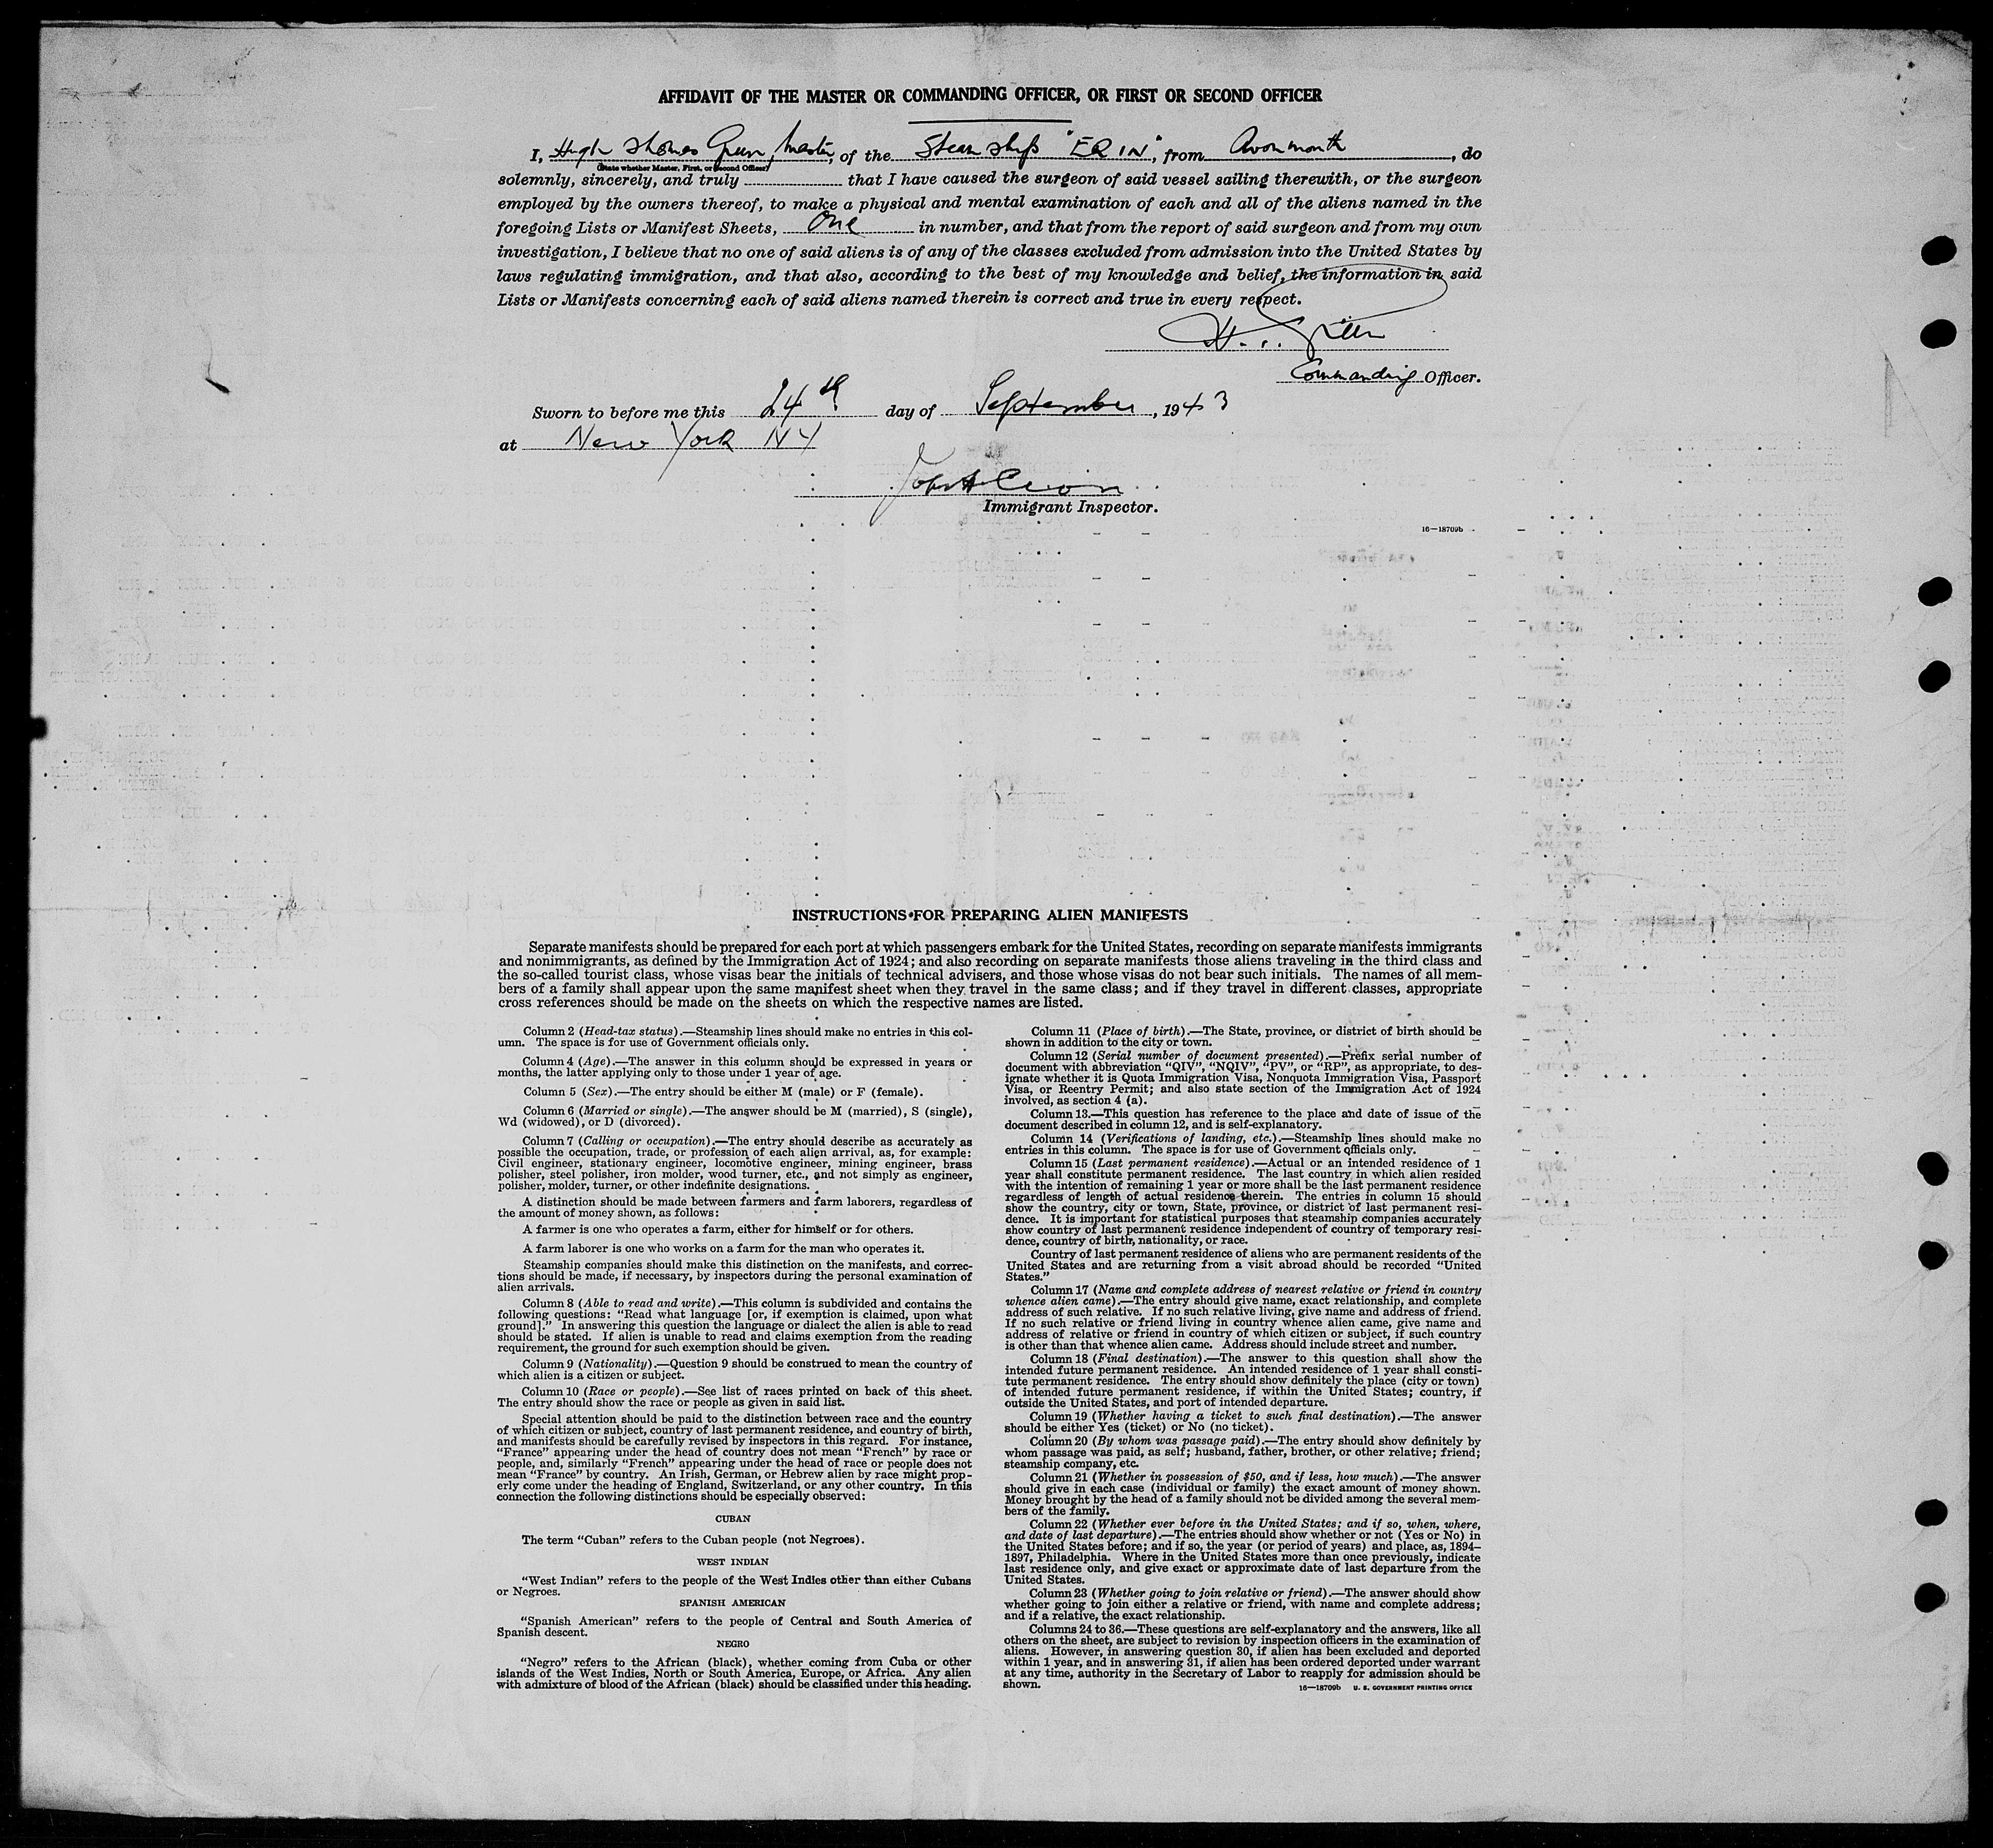 AFFIDAVIT OF THE MASTER OR COMMANDING OFFICER, OR FIRST OR SECOND OFFICER
I, Hugh Thomas Green, Master, of the Steam ship "ERIN", from Avonmouth, do
(State whether Master, First, or Second Officer)
solemnly, sincerely, and truly that I have caused the surgeon of said vessel sailing therewith, or the surgeon
employed by the owners thereof, to make a physical and mental examination of each and all of the aliens named in the
foregoing Lists or Manifest Sheets, One in number, and that from the report of said surgeon and from my own
investigation, I believe that no one of said aliens is of any of the classes excluded from admission into the United States by
laws regulating immigration, and that also, according to the best of my knowledge and belief, the information in said
Lists or Manifests concerning each of said aliens named therein is correct and true in every respect.
Commanding Officer.
Sworn to before me this 24th day of September, 1943
at New York NY
Immigrant Inspector.
16—18709b
INSTRUCTIONS FOR PREPARING ALIEN MANIFESTS
Separate manifests should be prepared for each port at which passengers embark for the United States, recording on separate manifests immigrants
and nonimmigrants, as defined by the Immigration Act of 1924; and also recording on separate manifests those aliens traveling in the third class and
the so-called tourist class, whose visas bear the initials of technical advisers, and those whose visas do not bear such initials. The names of all mem-
bers of a family shall appear upon the same manifest sheet when they travel in the same class; and if they travel in different classes, appropriate
cross references should be made on the sheets on which the respective names are listed.
Column 2 (Head-tax status).—Steamship lines should make no entries in this col-
umn. The space is for use of Government officials only.
Column 4 (Age).—The answer in this column should be expressed in years or
months, the latter applying only to those under 1 year of age.
Column 5 (Sex).—The entry should be either M (male) or F (female).
Column 6 (Married or single).—The answer should be M (married), S (single),
Wd (widowed), or D (divorced).
Column 7 (Calling or occupation).—The entry should describe as accurately as
possible the occupation, trade, or profession of each alien arrival, as, for example:
Civil engineer, stationary engineer, locomotive engineer, mining engineer, brass
polisher, steel polisher, iron molder, wood turner, etc., and not simply as engineer,
polisher, molder, turner, or other indefinite designations.
A distinction should be made between farmers and farm laborers, regardless of
the amount of money shown, as follows:
A farmer is one who operates a farm, either for himself or for others.
A farm laborer is one who works on a farm for the man who operates it.
Steamship companies should make this distinction on the manifests, and correc-
tions should be made, if necessary, by inspectors during the personal examination of
alien arrivals.
Column 8 (Able to read and write).—This column is subdivided and contains the
following questions: "Read what language [or, if exemption is claimed, upon what
ground]." In answering this question the language or dialect the alien is able to read
should be stated. If alien is unable to read and claims exemption from the reading
requirement, the ground for such exemption should be given.
Column 9 (Nationality).—Question 9 should be construed to mean the country of
which alien is a citizen or subject.
Column 10 (Race or people).—See list of races printed on back of this sheet.
The entry should show the race or people as given in said list.
Special attention should be paid to the distinction between race and the country
of which citizen or subject, country of last permanent residence, and country of birth,
and manifests should be carefully revised by inspectors in this regard. For instance,
"France" appearing under the head of country does not mean "French" by race or
people, and, similarly "French" appearing under the head of race or people does not
mean "France" by country. An Irish, German, or Hebrew alien by race might prop-
erly come under the heading of England, Switzerland, or any other country. In this
connection the following distinctions should be especially observed:
CUBAN
The term "Cuban" refers to the Cuban people (not Negroes).
WEST INDIAN
"West Indian" refers to the people of the West Indies other than either Cubans
or Negroes.
SPANISH AMERICAN
"Spanish American" refers to the people of Central and South America of
Spanish descent.
NEGRO
"Negro" refers to the African (black), whether coming from Cuba or other
islands of the West Indies, North or South America, Europe, or Africa. Any alien
with admixture of blood of the African (black) should be classified under this heading.
Column 11 (Place of birth).—The State, province, or district of birth should be
shown in addition to the city or town.
Column 12 (Serial number of document presented).—Prefix serial number of
document with abbreviation "QIV", "NQIV", "PV", or "RP", as appropriate, to des-
ignate whether it is Quota Immigration Visa, Nonquota Immigration Visa, Passport
Visa, or Reentry Permit; and also state section of the Immigration Act of 1924
involved, as section 4 (a).
Column 13.—This question has reference to the place and date of issue of the
document described in column 12, and is self-explanatory.
Column 14 (Verifications of landing, etc.).—Steamship lines should make no
entries in this column. The space is for use of Government officials only.
Column 15 (Last permanent residence).—Actual or an intended residence of 1
year shall constitute permanent residence. The last country in which alien resided
with the intention of remaining 1 year or more shall be the last permanent residence
regardless of length of actual residence therein. The entries in column 15 should
show the country, city or town, State, province, or district of last permanent resi-
dence. It is important for statistical purposes that steamship companies accurately
show country of last permanent residence independent of country of temporary resi-
dence, country of birth, nationality, or race.
Country of last permanent residence of aliens who are permanent residents of the
United States and are returning from a visit abroad should be recorded "United
States."
Column 17 (Name and complete address of nearest relative or friend in country
whence alien came).—The entry should give name, exact relationship, and complete
address of such relative. If no such relative living, give name and address of friend.
If no such relative or friend living in country whence alien came, give name and
address of relative or friend in country of which citizen or subject, if such country
is other than that whence alien came. Address should include street and number.
Column 18 (Final destination).—The answer to this question shall show the
intended future permanent residence. An intended residence of 1 year shall consti-
tute permanent residence. The entry should show definitely the place (city or town)
of intended future permanent residence, if within the United States; country, if
outside the United States, and port of intended departure.
Column 19 (Whether having a ticket to such final destination).—The answer
should be either Yes (ticket) or No (no ticket).
Column 20 (By whom was passage paid).—The entry should show definitely by
whom passage was paid, as self; husband, father, brother, or other relative; friend;
steamship company, etc.
Column 21 (Whether in possession of $50, and if less, how much).—The answer
should give in each case (individual or family) the exact amount of money shown.
Money brought by the head of a family should not be divided among the several mem-
bers of the family.
Column 22 (Whether ever before in the United States; and if so, when, where,
and date of last departure).—The entries should show whether or not (Yes or No) in
the United States before; and if so, the year (or period of years) and place, as, 1894–
1897, Philadelphia. Where in the United States more than once previously, indicate
last residence only, and give exact or approximate date of last departure from the
United States.
Column 23 (Whether going to join relative or friend).—The answer should show
whether going to join either a relative or friend, with name and complete address;
and if a relative, the exact relationship.
Columns 24 to 36.—These questions are self-explanatory and the answers, like all
others on the sheet, are subject to revision by inspection officers in the examination of
aliens. However, in answering question 30, if alien has been excluded and deported
within 1 year, and in answering 31, if alien has been ordered deported under warrant
at any time, authority in the Secretary of Labor to reapply for admission should be
shown.
16—18709b U. S. GOVERNMENT PRINTING OFFICE